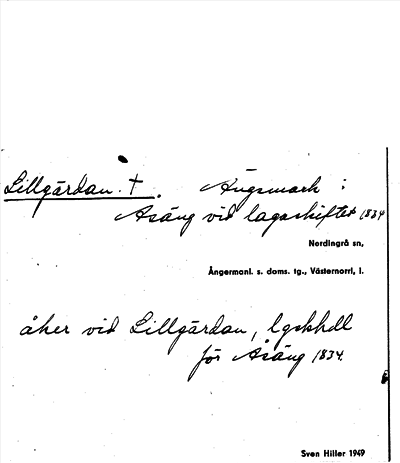 Lillgärdan. †. Ängsmark i
Åsäng vid lagaskiftet 1834
Nordingrå sn,
Ångermanl. s. doms. tg., Västernorrl, l.
åker vid Lillgärdan, lgskhdl
för Åsäng 1834.
Sven Hiller 1949